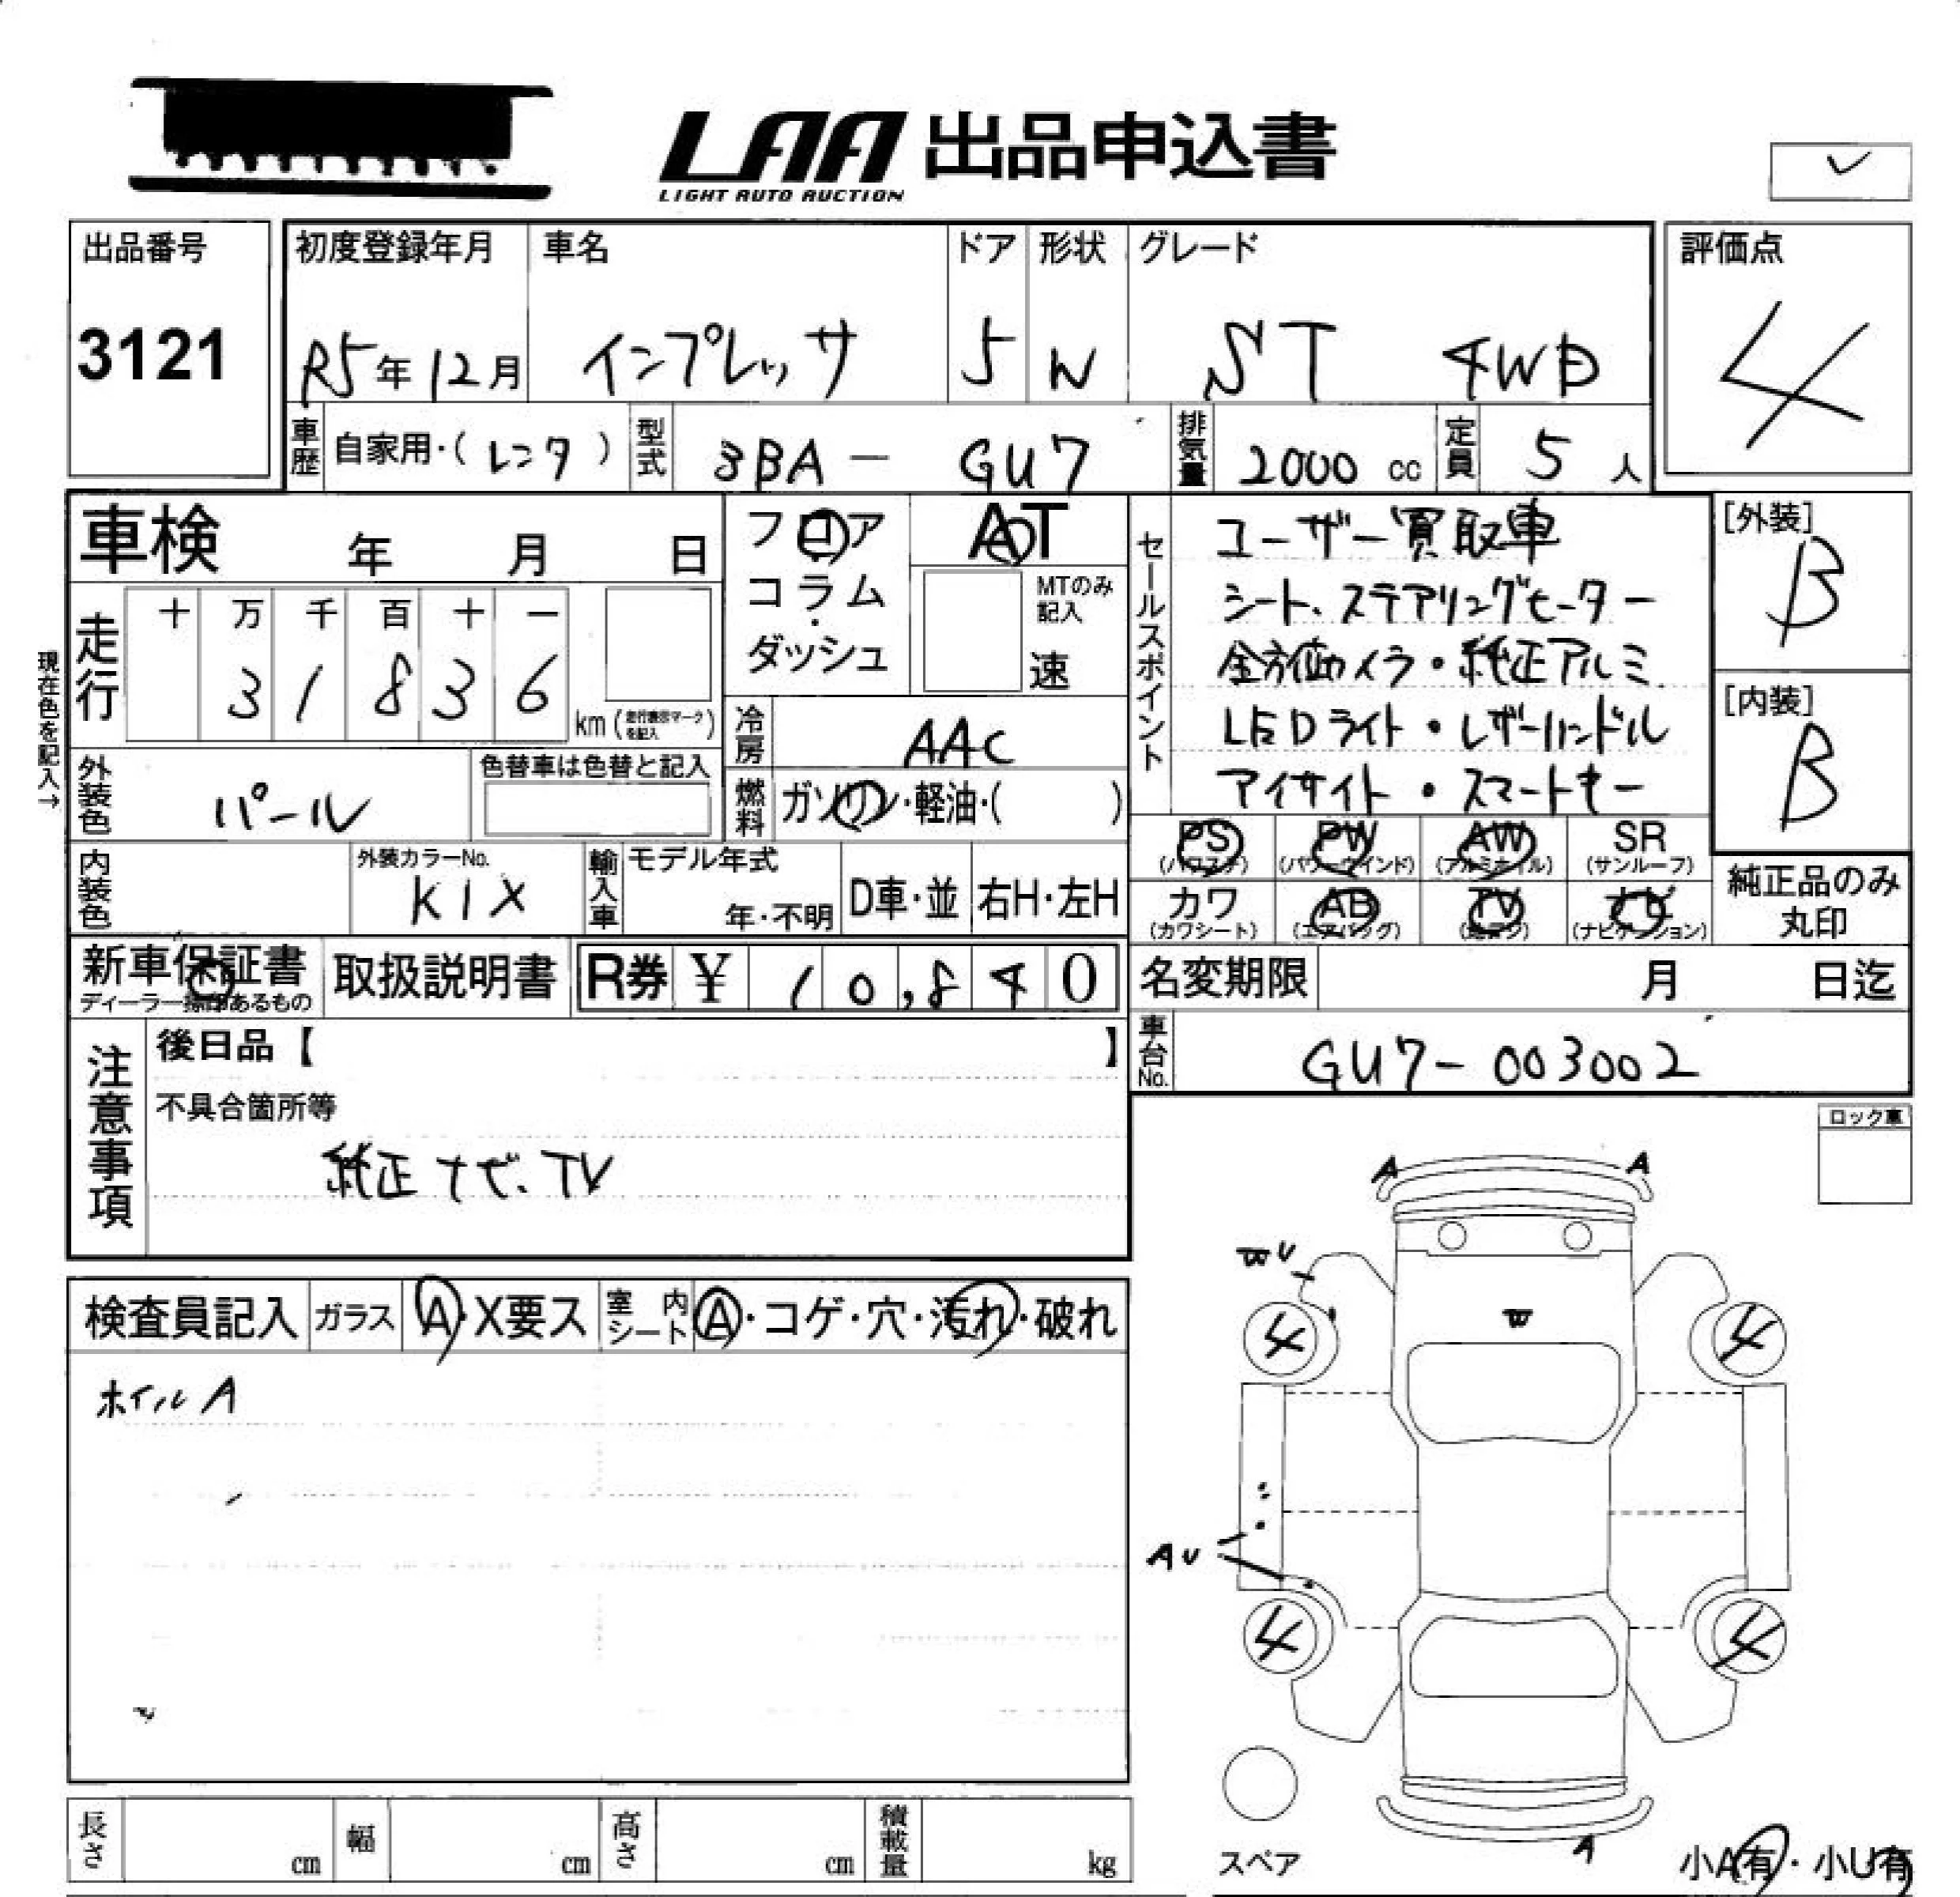 LAA 出品申込書
LIGHT AUTO AUCTION
出品番号
3121
初度登録年月
R5年12月
車名
インプレッサ
ドア
5
形状
W
グレード
ST 4WD
評価点
4
車歴 自家用・(レンタ)
型式 3BA - GU7
排気量 2000 cc
定員 5 人
車検 年 月 日
現在色を記入→
走行
十 万 千 百 十 一
3 1 8 3 6
km (走行表示マークを記入)
フロア
コラム
・
ダッシュ
AT
MTのみ
記入
速
冷房 AAC
燃料 ガソリン・軽油・( )
セールスポイント
ユーザー買取車
シート、ステアリングヒーター
全方位カメラ・純正アルミ
LEDライト・レザーハンドル
アイサイト・スマートキー
[外装]
B
[内装]
B
外装色 パール
色替車は色替と記入
内装色
外装カラーNo.
K1X
輸入車
モデル年式
年・不明
D車・並
右H・左H
PS
(パワステ)
PW
(パワーウインド)
AW
(アルミホイル)
SR
(サンルーフ)
カワ
(カワシート)
AB
(エアバッグ)
TV
ナビ
(ナビゲーション)
純正品のみ
丸印
新車保証書
ディーラー捺印あるもの
取扱説明書
R券 ¥ 10,840
名変期限 月 日迄
車台No. GU7-003002
注意事項
後日品【 】
不具合箇所等
純正ナビ、TV
ロック車
検査員記入
ガラス A・X要ス
室内シート A・コゲ・穴・汚れ・破れ
ホイルA
A
A
WU
W
4
4
AU
4
4
スペア
A
小A有・小U有
長さ cm
幅 cm
高さ cm
積載量 kg